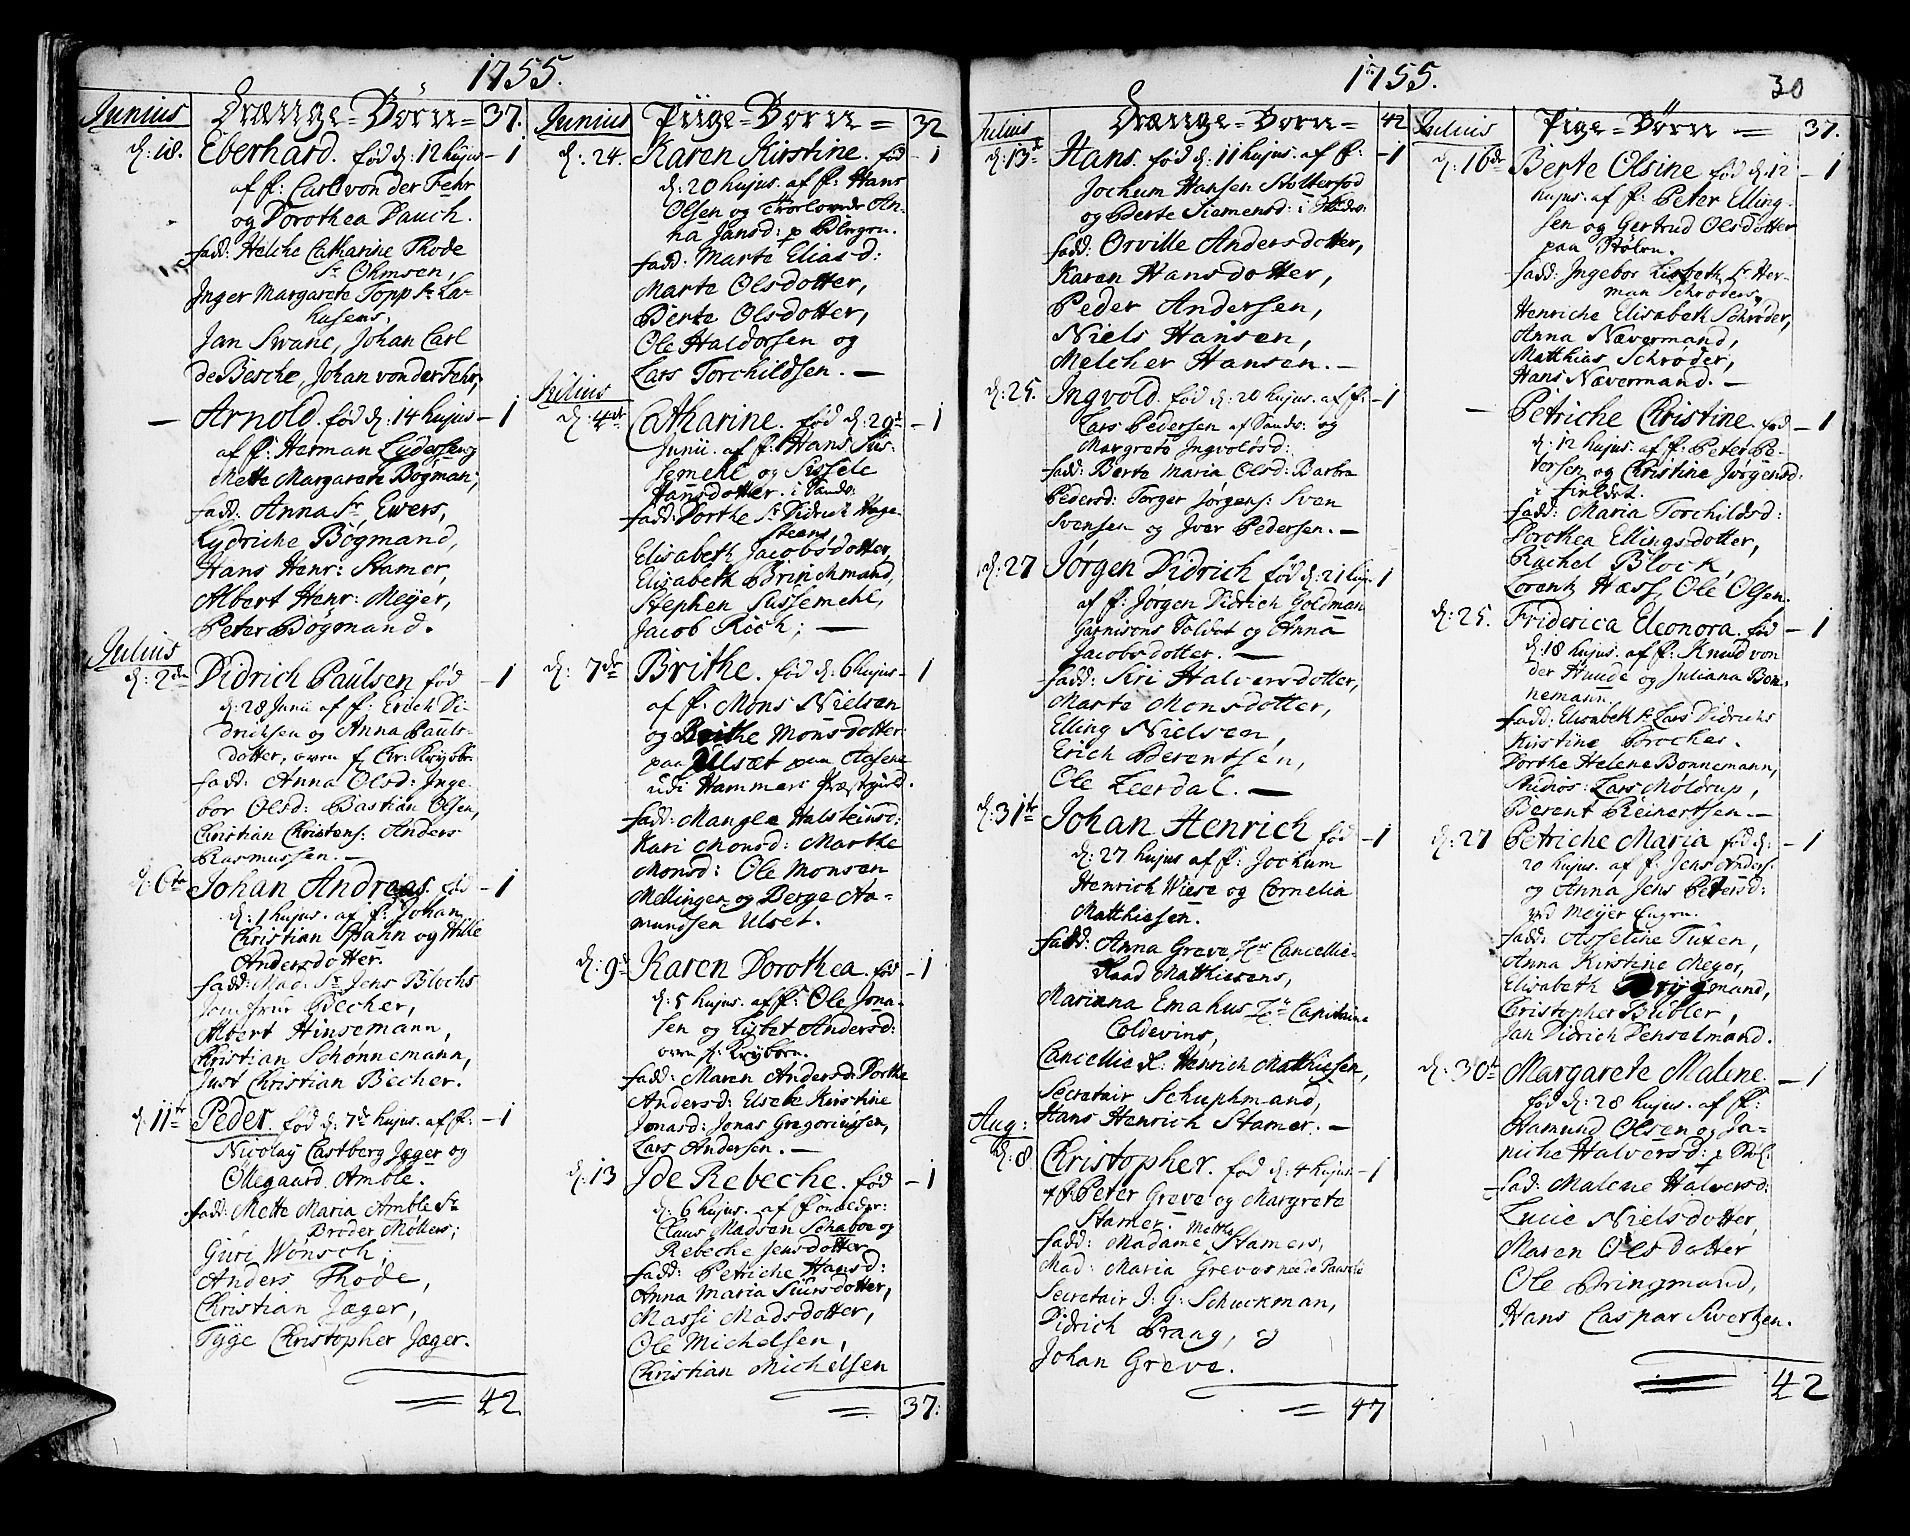 1755.
Junius
Drænge-Börn=
37.
d: 18.
Eberhard. fød d: 12 hujus - 1
af f: Carl von der Fehr
og Dorothea Dauch.
fadd: Helche Catharine Thode
Sr Ohmsen,
Inger Margarete Topp Sr La-
husens,
Jan Swane, Johan Carl
De Besche, Johan von der Fehr,
— Arnold. fød d: 14 hujus - 1
af f: Herman Lyderssen og
Mette Margarete Bögman;
fadd: Anna Sr Ewers,
Lydriche Bögmand,
Hans Henr: Stamer,
Albert Henr: Meyer,
Peter Bögmand.
Julius
d: 2den Didrich Paulsen fød - 1
d: 28 Junii af f: Erich Di-
drichsen og Anna Pauls-
dotter, oven f Chr: Krysbr
fadd: Anna Olsd: Inge-
bor Olsd: Bastian Olsen,
Christian Christens: Anders
Rasmussen. —
d: 6te Johan Andreas. fød - 1
d: 1 hujus. af f: Johan
Christian Spahn og Hille
Andersdotter.
fadd: Mad: Sr Jens Blochs
Jomfrur Becher,
Albert Hinsemann,
Christian Schønnemann,
Just Christian Becher.
d: 11te Peder. fød d: 7de hujus. af f: - 1
Nicolay Castberg Jæger og
Ollegaard Amble.
fadd: Mette Maria Amble Sr
Broder Møllers;
Guri Wönsch,
Anders Thode,
Christian Jæger,
Tyge Christopher Jæger.
= 42
Junius
Piige-Börn =
32
d: 24. Karen Kirstine. fød - 1
d: 20 hujus. af f: Hans
Olsen og Trorlovede An-
na Jansd: p Blegen.
fadd: Marte Eliasd:
Marte Olsdotter,
Berte Olsdotter,
Ole Haldorsen og
Lars Torchildsen. —
Julius
d: 4de Catharine. fød d: 29d - 1
Junii. af f: Hans Sus-
semehl og Sissele
Hansdotter. i Sandv:
fadd: Dorthe Sr Didrich Hage-
steens,
Elisabeth Jacobsdotter,
Elisabeth Brinchmand,
Stephen Sussemehl,
Jacob Rich; —
d: 7de Brithe. fød d: 6 hujus - 1
af f: Mons Nielsen
og Brithe Monsdotter
paa Ulsæt paa Aasene
udi Hammers Præstgield.
fadd: Mangle Halsteinsd:
Kari Monsd: Marthe
Monsd: Ole Monsen
Mellingen og Berge Aa-
mundsen Ulset.
d: 9d Karen Dorothea. fød - 1
d: 5 hujus. af f: Ole Jona-
sen og Lisbet Andersd:
oven f. Kryborn.
fadd: Maren Andersd: Dorthe
Andersd: Elsebe Kirstine
Jonasd: Jonas Gregoriussen,
Lars Andersen. —
d: 13 Ide Rebeche. fød - 1
d: 6 hujus. af Constabr:
Claus Madsen Schaboe og
Rebeche Jensdotter
fadd: Petriche Hansd:
Anna Maria Siursdotter,
Massi Madsdotter,
Ole Michelsen,
Christian Michelsen
= 37.
1755.
30
Julius
Drænge-Börn -
42
d: 13d Hans. fød d: 11 hujus. af f: - 1
Jochum Hansen Stoltersod
og Berte Siemensd: i Sandv:
fadd: Orville Andersdotter,
Karen Hansdotter,
Peder Andersen,
Niels Hansen,
Melcher Hansen. —
d: 25. Ingvold. fød d: 20 hujus. af f: - 1
Lars Pedersen af Sandv: og
Margrete Ingvolsd:
fadd: Berte Maria Olsd: Barbra
Pedersd: Torger Jørgens: Sven
Svensen og Iver Pedersen. —
d: 27 Jørgen Didrich fød d: 21 huj - 1
af f: Jørgen Didrich Goldman
Garnisons Soldat og Anna
Jacobsdotter. —
fadd: Siri Halversdotter,
Marte Monsdotter,
Elling Nielsen,
Erich Berentsen,
Ole Leerdal. —
d: 31te Johan Henrich fød - 1
d: 27 hujus af f: Jochum
Henrich Wiese og Cornelia
Matthiesen.
fadd: Anna Greve, Hr Cancellie-
Raad Mathiesens,
Marianna Emahus Hr Capitaine
Coldevins,
Cancellie R: Henrich Mathiesen,
Secretair Schuphmand,
Hans Henrich Stamer. —
Aug:
d: 8 Christopher. fød d: 4 hujus - 1
af f: Peter Greve og Margrete
Stamer.
fadd: Madame Mettle Stamers,
Mad: Maria Greves
Secretair J: G: Schuckman,
Didrich Prang, og
Johan Greve.
= 47
Julius
Pige-Börn =
37.
d: 16de Berte Olsine fød d: 12 - 1
hujus. af f: Peter Elling-
sen og Gertrud Olsdotter
paa Stølen.
fadd: Ingebor Lisbeth Sr Her-
man Schrøders,
Henriche Elisabeth Schrøder,
Anna Nævermand,
Matthias Schrøder,
Hans Nævermand. —
— Petriche Christine. fød - 1
d: 12 hujus. af f: Peter Pe-
tersen og Christine Jørgensd:
i Fieldet.
fadd: Maria Torchildsd:
Dorothea Ellingsdotter,
Rachel Block,
Lorentz Hass, Ole Olsen.
d: 25. Friderica Eleonora. fød - 1
d: 18 hujus. af f: Knud von
der Hude og Juliana Bon-
nemann.
fadd: Elisabeth Sr Lars Didrichs
Kirstine Brochs.
Dorthe Helene Bonnemann,
Studios: Lars Møldrup,
Berent Reinertsen. —
d: 27 Petriche Maria fød d: - 1
20 hujus. af f. Jens Anders:
og Anna Jens Petersd:
ved Meyer Engen.
fadd: Asseline Tuxen,
Anna Kirstine Meyer,
Elisabeth Brygmand,
Christopher Bübler,
Jan Didrich Denselmand.
d: 30te Margarete Malene. - 1
fød d: 28 hujus. af f:
Hamund Olsen og Ja-
niche Halversd:
fad: Malene Halversd:
Lucie Nielsdotter,
Maren Olsdotter
Ole Bringmand,
Hans Caspar Sivertsen.
= 42